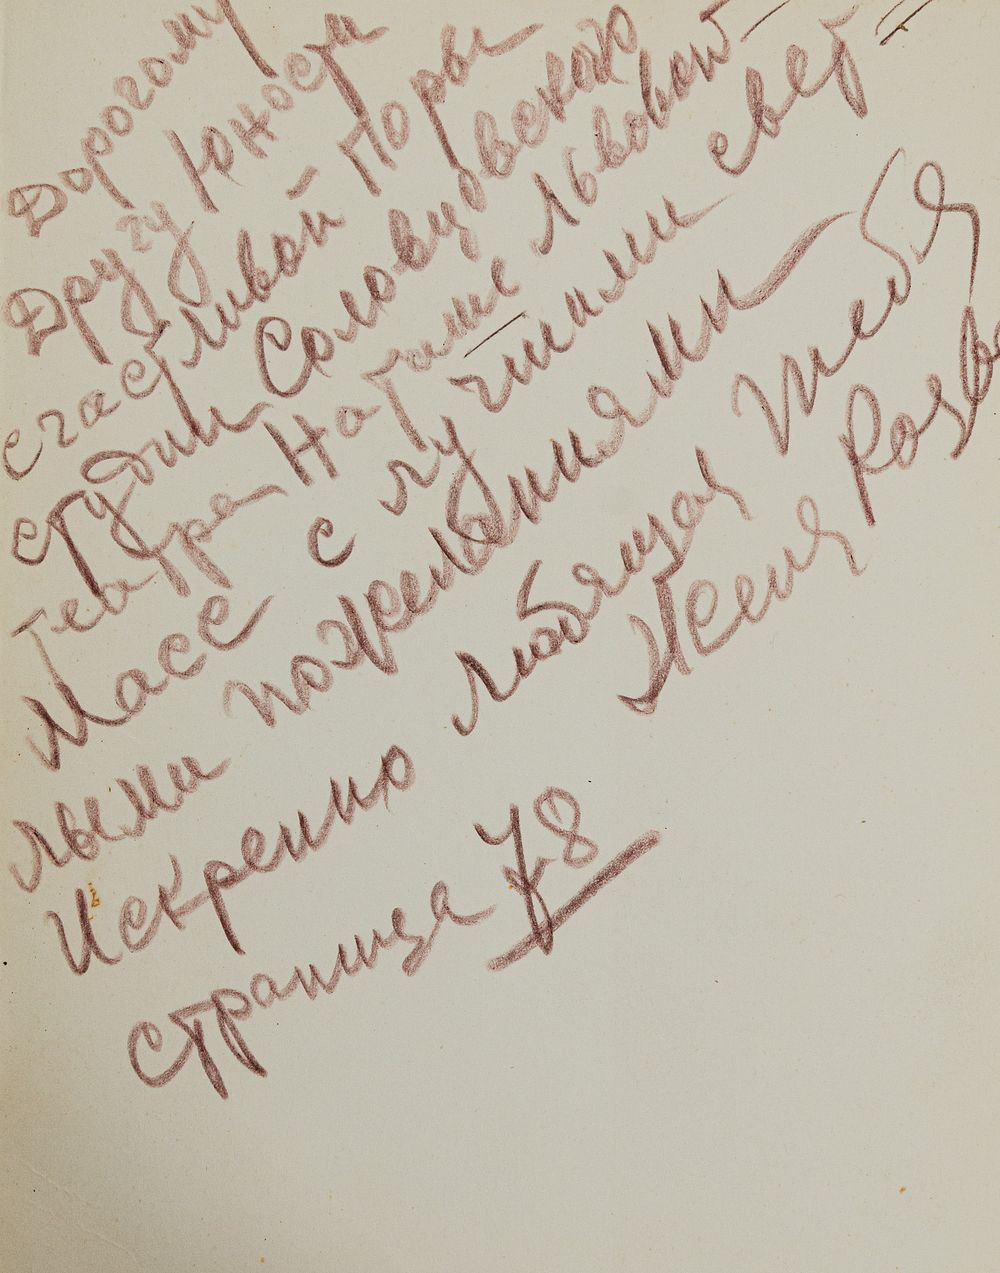 Дорогому
Другу Юности
счастливой - Поры
студии Соловцовского
Театра Наташе Львовой-
Масс с лучшими свет-
лыми пожеланиями
Искренно любящая тебя
Женя
страница 78